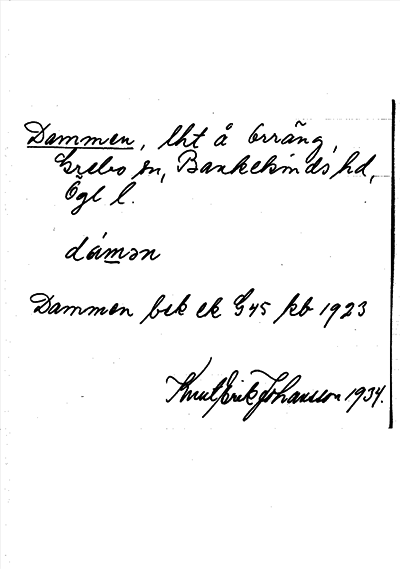 Dammen, lht å Orräng,
Grebo sn, Bankekinds hd,
Ögl l.
dámən
Dammen bsk ek G45 kb 1923
Knut Erik Johansson 1934.